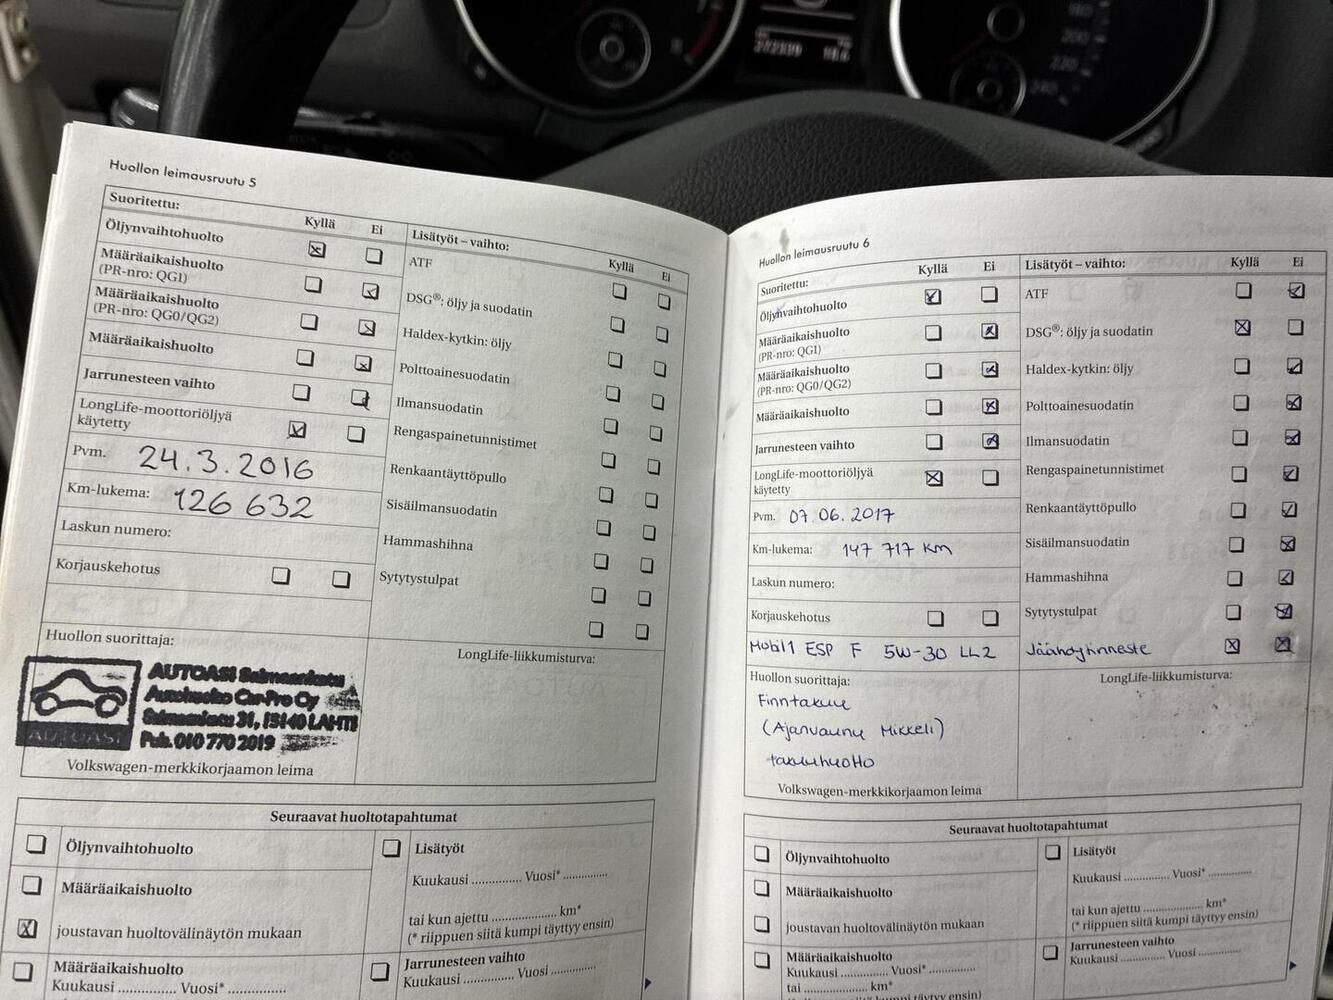 Huollon leimausruutu 5
Suoritettu:
Kyllä
Ei
Öljynvaihtohuolto
Määräaikaishuolto
(PR-nro: QG1)
Määräaikaishuolto
(PR-nro: QG0/QG2)
Määräaikaishuolto
Jarrunesteen vaihto
LongLife-moottoriöljyä
käytetty
Pvm. 24.3.2016
Km-lukema: 126 632
Laskun numero:
Korjauskehotus
Huollon suorittaja:
AUTOASI Salmaankatu
Autohuolto Car-Pro Oy
31, 15140 LAHTI
Puh. 010 770 2019
AUTOASI
Volkswagen-merkkikorjaamon leima
Lisätyöt – vaihto:
Kyllä
Ei
ATF
DSG®: öljy ja suodatin
Haldex-kytkin: öljy
Polttoainesuodatin
Ilmansuodatin
Rengaspainetunnistimet
Renkaantäyttöpullo
Sisäilmansuodatin
Hammashihna
Sytytystulpat
LongLife-liikkumisturva:
Seuraavat huoltotapahtumat
Öljynvaihtohuolto
Määräaikaishuolto
joustavan huoltovälinäytön mukaan
Määräaikaishuolto
Kuukausi ............. Vuosi* .............
Lisätyöt
Kuukausi ............. Vuosi* .............
tai kun ajettu .................... km*
(* riippuen siitä kumpi täyttyy ensin)
Jarrunesteen vaihto
Kuukausi ............. Vuosi .............
Huollon leimausruutu 6
Suoritettu:
Kyllä
Ei
Öljynvaihtohuolto
Määräaikaishuolto
(PR-nro: QG1)
Määräaikaishuolto
(PR-nro: QG0/QG2)
Määräaikaishuolto
Jarrunesteen vaihto
LongLife-moottoriöljyä
käytetty
Pvm. 07.06.2017
Km-lukema: 147 717 km
Laskun numero:
Korjauskehotus
Mobil1 ESP F 5W-30 LL2
Huollon suorittaja:
Finntakuu
(Ajanvaunu Mikkeli)
takuuhuolto
Volkswagen-merkkikorjaamon leima
Lisätyöt – vaihto:
Kyllä
Ei
ATF
DSG®: öljy ja suodatin
Haldex-kytkin: öljy
Polttoainesuodatin
Ilmansuodatin
Rengaspainetunnistimet
Renkaantäyttöpullo
Sisäilmansuodatin
Hammashihna
Sytytystulpat
Jäähdytinneste
LongLife-liikkumisturva:
Seuraavat huoltotapahtumat
Öljynvaihtohuolto
Määräaikaishuolto
joustavan huoltovälinäytön mukaan
Määräaikaishuolto
Kuukausi ............. Vuosi* .............
tai .................... km*
Lisätyöt
Kuukausi ............. Vuosi* .............
tai kun ajettu .................... km*
(* riippuen siitä kumpi täyttyy ensin)
Jarrunesteen vaihto
Kuukausi ............. Vuosi .............